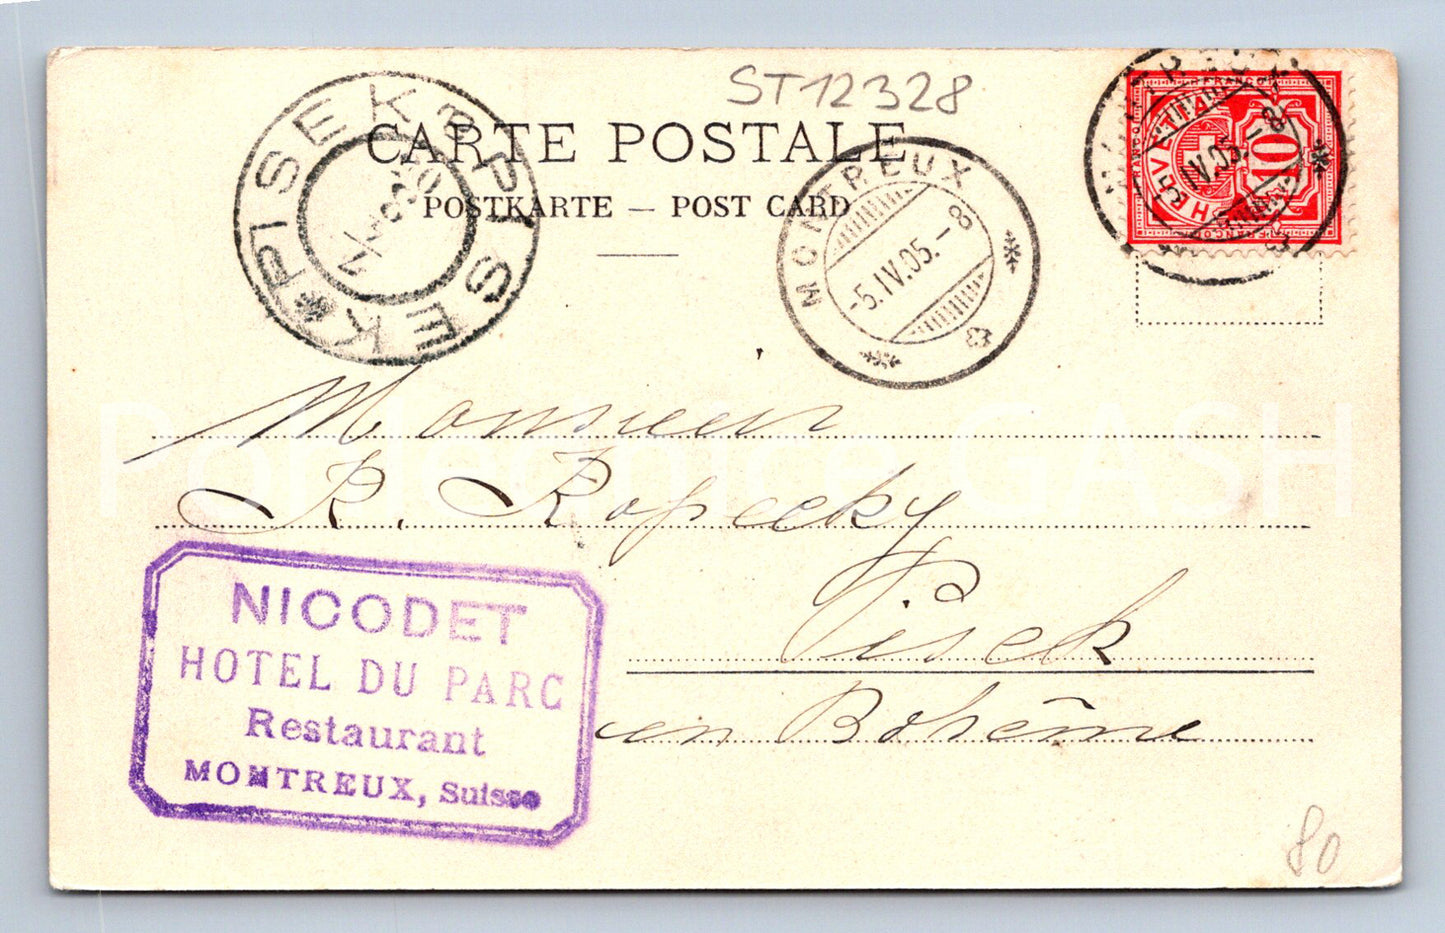 ST12328
CARTE POSTALE
POSTKARTE — POST CARD
PISEK * PISEK
MONTREUX
-5.IV.05.-8
FRANCO
HELVETIA
10
IV.05.
Monsieur
R. Kopecky
Pisek
en Bohême
NICODET
HOTEL DU PARC
Restaurant
MONTREUX, Suisse
Pohlednice CASH
80